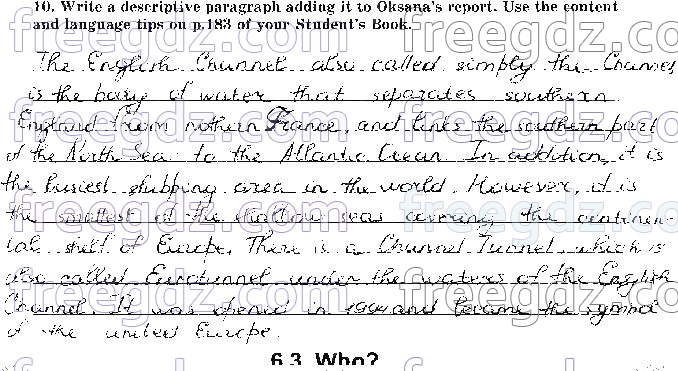 10. Write a descriptive paragraph adding it to Oksana's report. Use the content
and language tips on p.183 of your Student's Book.
The English Channel also called simply the Channel
is the body of water that separates southern
England from nothern France, and links the southern part
of the North Sea to the Atlantic Ocean. In addition, it is
the busiest shipping area in the world. However, it is
the smallest of the shallow seas covering the continen-
tal shelf of Europe. There is a Channel Tunnel which is
also called Eurotunnel under the waters of the English
Channel. It was opened in 1994 and became the symbol
of the united Europe.
6.3. Who?
freegdz.com